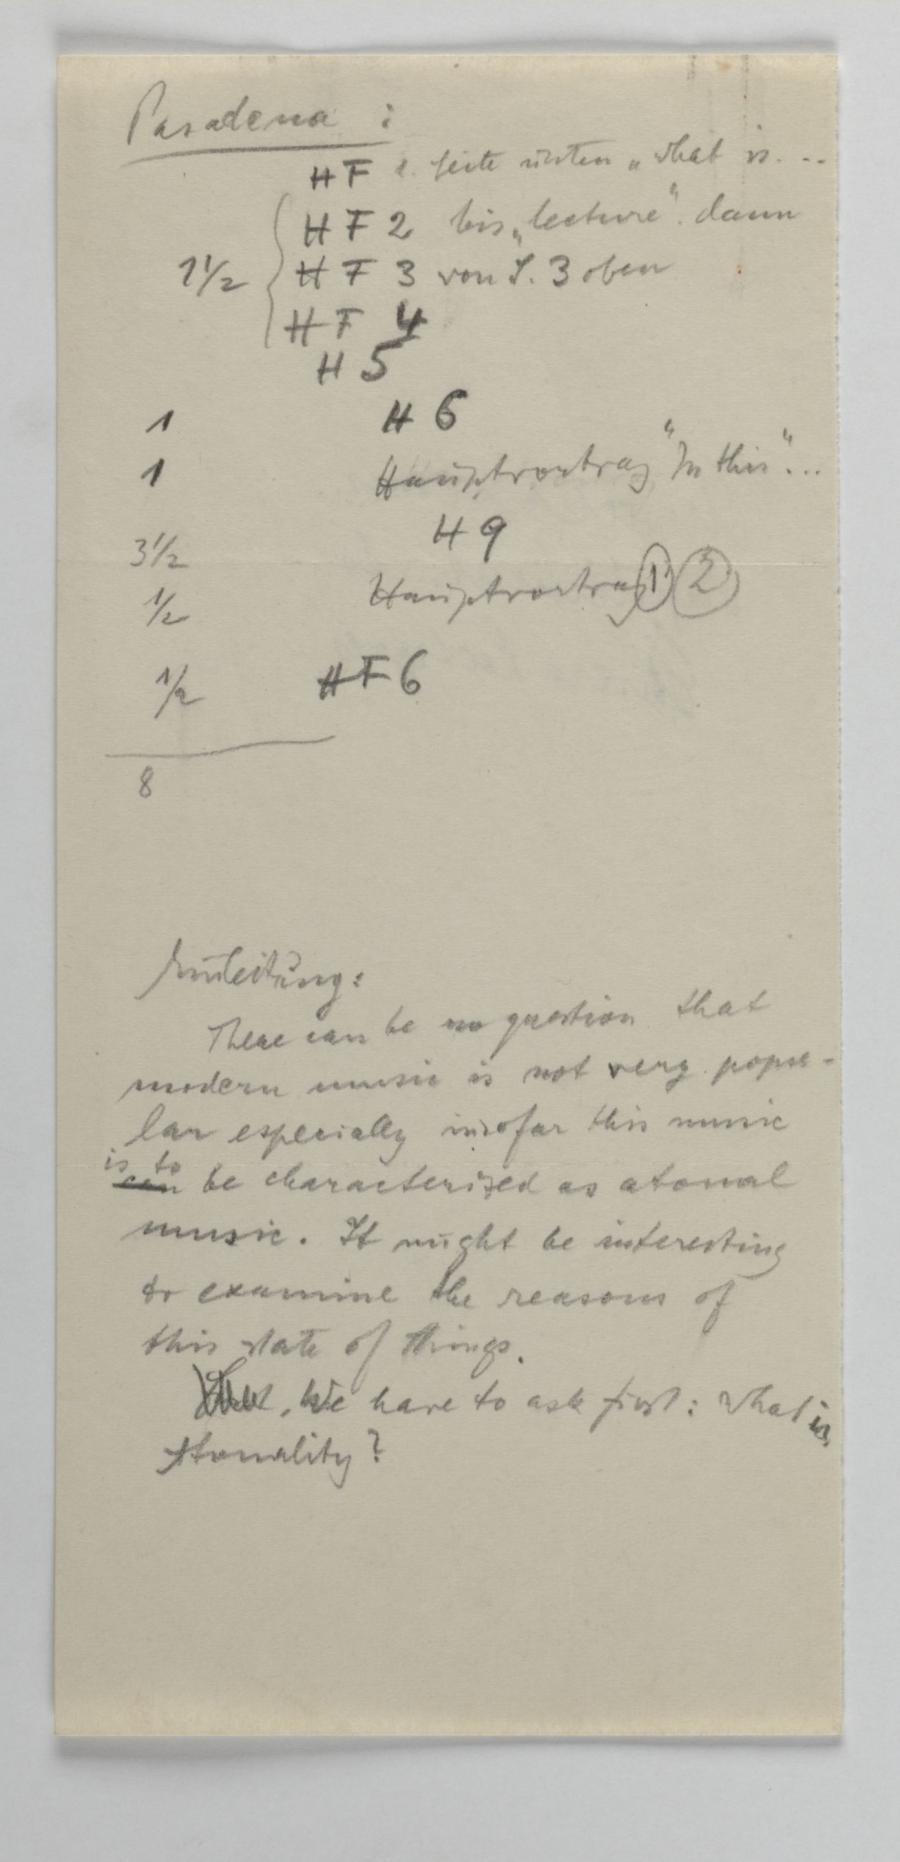 Pasadena :
HF 1. Seite unten „What is...
HF 2 bis „lecture“. dann
1 1/2 { HF 3 von S. 3 oben
HF 4
H 5
1 H 6
1 Hauptvortrag "In this"...
H 9
3 1/2
1/2 Hauptvortrag 1 2
1/2 HF 6
8
Einleitung:
There can be no question that
modern music is not very popu-
lar especially insofar this music
is to
can be characterized as atonal
music. It might be interesting
to examine the reasons of
this state of things.
We have to ask first: What is
tonality?